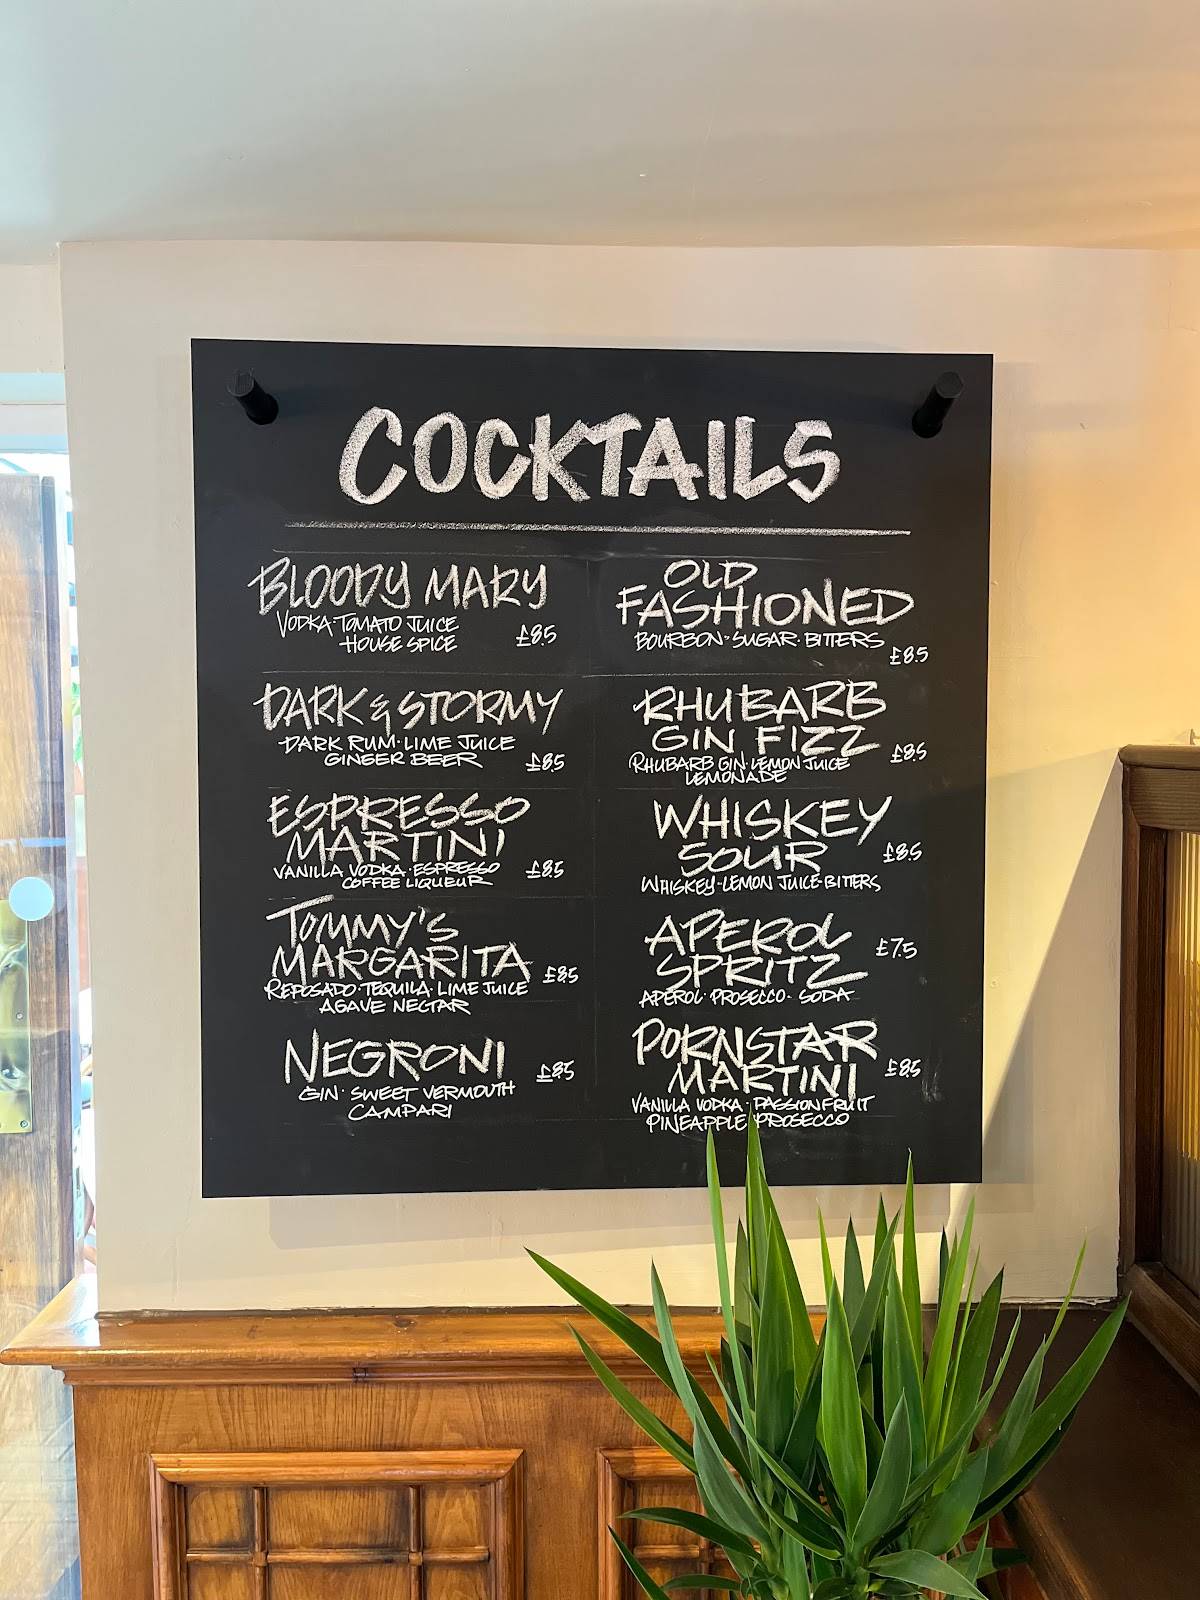 COCKTAILS
BLOODY MARY
VODKA·TOMATO JUICE
HOUSE SPICE
£8.5
DARK & STORMY
DARK RUM·LIME JUICE
GINGER BEER
£8.5
ESPRESSO
MARTINI
VANILLA VODKA·ESPRESSO
COFFEE LIQUEUR
£8.5
TOMMY'S
MARGARITA
REPOSADO·TEQUILA·LIME JUICE
AGAVE NECTAR
£8.5
NEGRONI
GIN·SWEET VERMOUTH
CAMPARI
£8.5
OLD
FASHIONED
BOURBON·SUGAR·BITTERS
£8.5
RHUBARB
GIN FIZZ
RHUBARB GIN·LEMON JUICE
LEMONADE
£8.5
WHISKEY
SOUR
WHISKEY·LEMON JUICE·BITTERS
£8.5
APEROL
SPRITZ
APEROL·PROSECCO·SODA
£7.5
PORNSTAR
MARTINI
VANILLA VODKA·PASSIONFRUIT
PINEAPPLE PROSECCO
£8.5